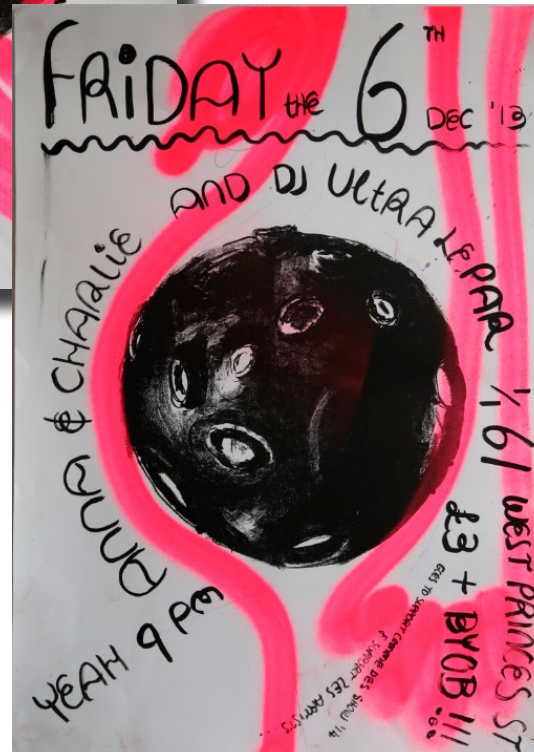 FRiDAY the 6TH DEC '13
ANNA & CHARLiE AND DJ ULtRA LEPAR
1/1 61 WEST PRINCES ST
£3 + BYOB !!!
GOES TO SUPPORT COMME DES SHOW 1/4
& SUPPORT LES ARTISTS ...
YEAH 9 PM